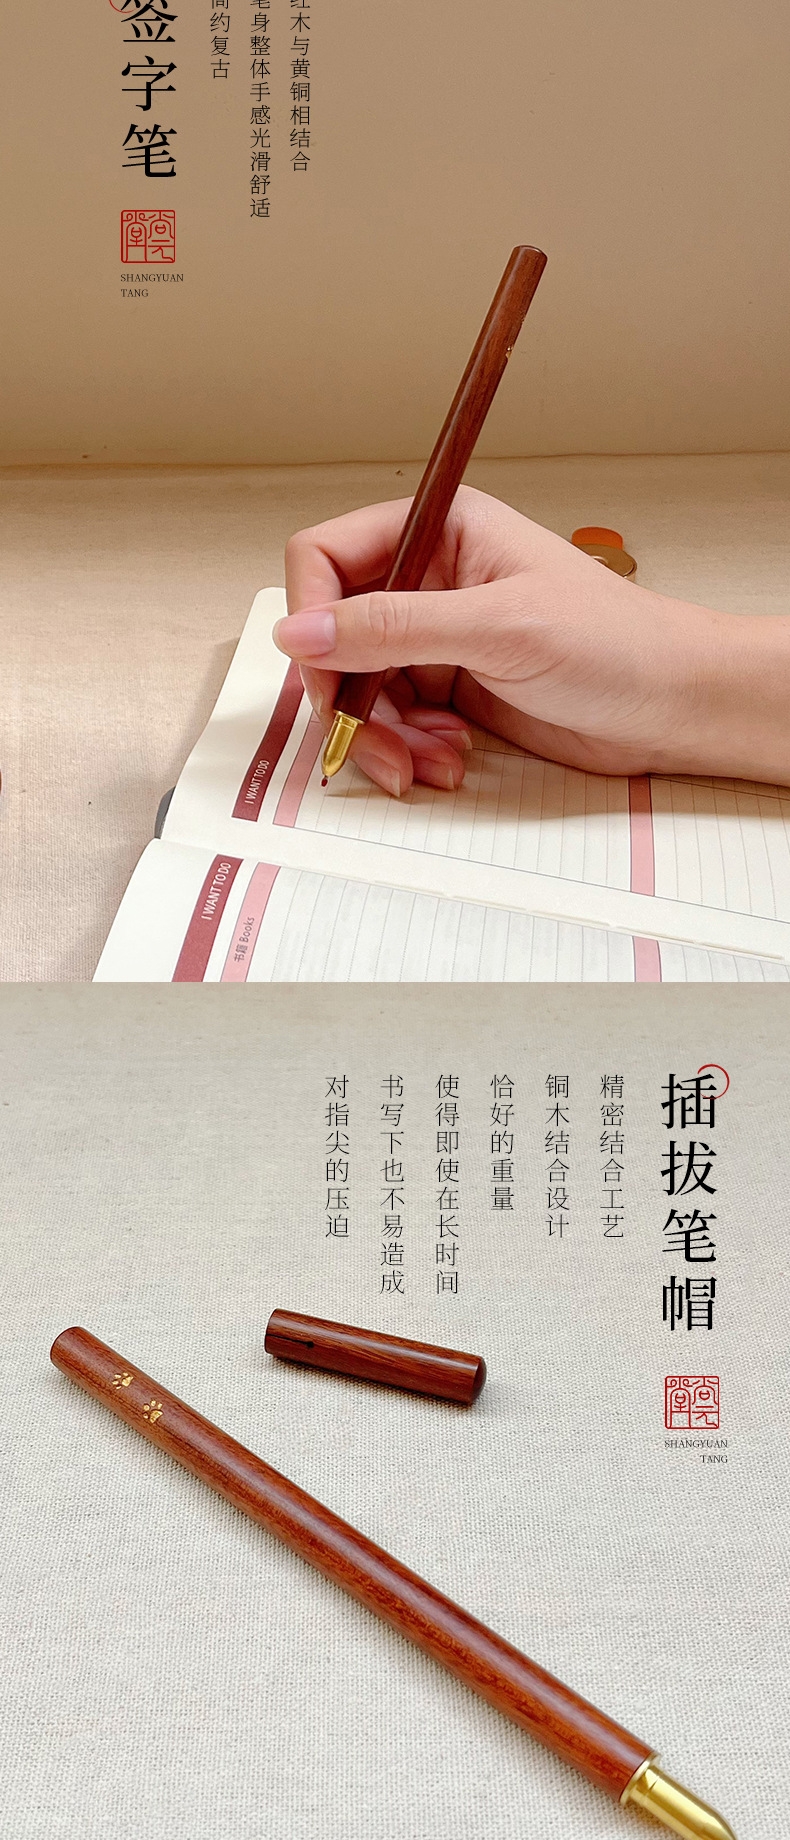 红木与黄铜相结合
笔身整体手感光滑舒适
简约复古
签字笔
尚元堂
SHANGYUAN
TANG
I WANT TO DO
I WANT TO DO
书籍 Books
插拔笔帽
精密结合工艺
铜木结合设计
恰好的重量
使得即使在长时间
书写下也不易造成
对指尖的压迫
尚元堂
SHANGYUAN
TANG